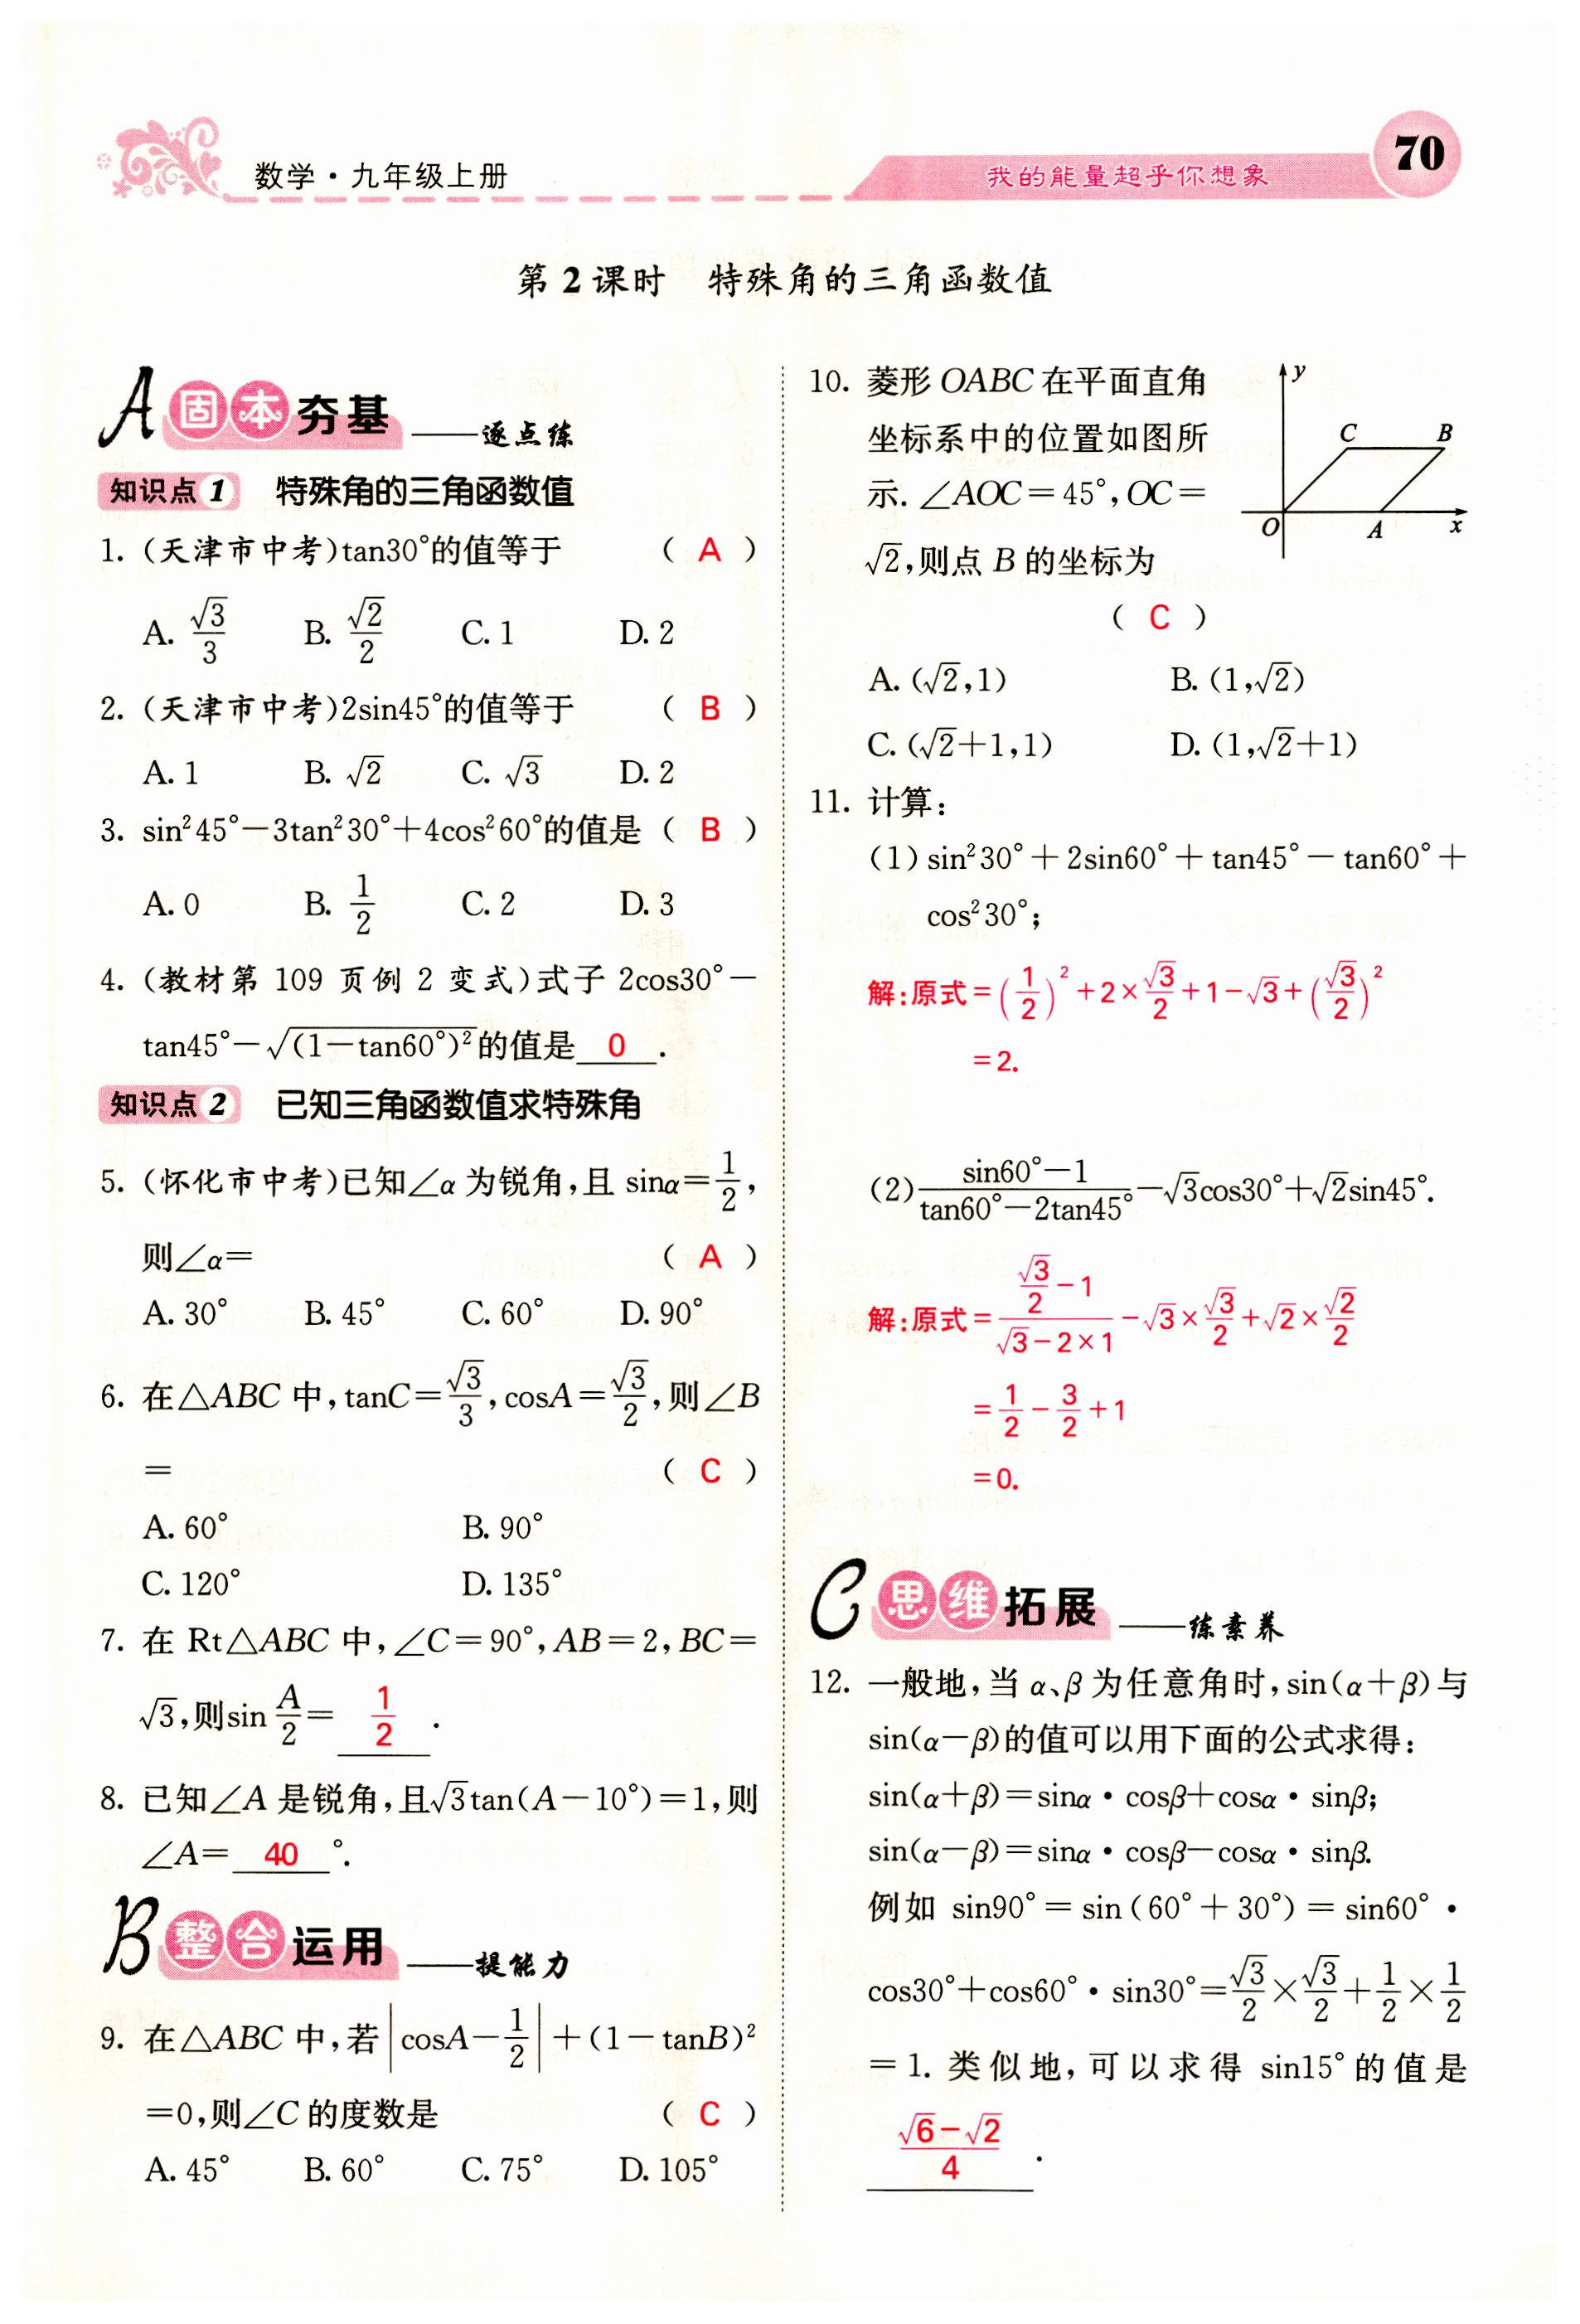 数学·九年级上册
我的能量超乎你想象
70
第2课时 特殊角的三角函数值
A 固本夯基 ——逐点练
知识点1 特殊角的三角函数值
1. (天津市中考)tan30°的值等于 ( A )
A. √3/3 B. √2/2 C. 1 D. 2
2. (天津市中考)2sin45°的值等于 ( B )
A. 1 B. √2 C. √3 D. 2
3. sin²45°－3tan²30°＋4cos²60°的值是 ( B )
A. 0 B. 1/2 C. 2 D. 3
4. (教材第 109 页例 2 变式)式子 2cos30°－
tan45°－√(1－tan60°)²的值是 0 .
知识点2 已知三角函数值求特殊角
5. (怀化市中考)已知∠α为锐角,且 sinα＝1/2,
则∠α＝ ( A )
A. 30° B. 45° C. 60° D. 90°
6. 在△ABC 中,tanC＝√3/3,cosA＝√3/2,则∠B
＝ ( C )
A. 60° B. 90°
C. 120° D. 135°
7. 在 Rt△ABC 中,∠C＝90°,AB＝2,BC＝
√3,则sin A/2＝ 1/2 .
8. 已知∠A 是锐角,且√3tan(A－10°)＝1,则
∠A＝ 40 °.
B 整合运用 ——提能力
9. 在△ABC 中,若|cosA－1/2|＋(1－tanB)²
＝0,则∠C 的度数是 ( C )
A. 45° B. 60° C. 75° D. 105°
10. 菱形 OABC 在平面直角
坐标系中的位置如图所
示. ∠AOC＝45°,OC＝
√2,则点 B 的坐标为
( C )
y
C B
O A x
A. (√2,1) B. (1,√2)
C. (√2＋1,1) D. (1,√2＋1)
11. 计算:
(1) sin²30°＋2sin60°＋tan45°－tan60°＋
cos²30°;
解:原式＝(1/2)²＋2×√3/2＋1－√3＋(√3/2)²
＝2.
(2) (sin60°－1)/(tan60°－2tan45°)－√3cos30°＋√2sin45°.
解:原式＝(√3/2－1)/(√3－2×1)－√3×√3/2＋√2×√2/2
＝1/2－3/2＋1
＝0.
C 思维拓展 ——练素养
12. 一般地,当 α、β 为任意角时,sin(α＋β)与
sin(α－β)的值可以用下面的公式求得:
sin(α＋β)＝sinα·cosβ＋cosα·sinβ;
sin(α－β)＝sinα·cosβ－cosα·sinβ.
例如 sin90°＝sin(60°＋30°)＝sin60°·
cos30°＋cos60°·sin30°＝√3/2×√3/2＋1/2×1/2
＝1. 类似地,可以求得 sin15°的值是
(√6－√2)/4 .